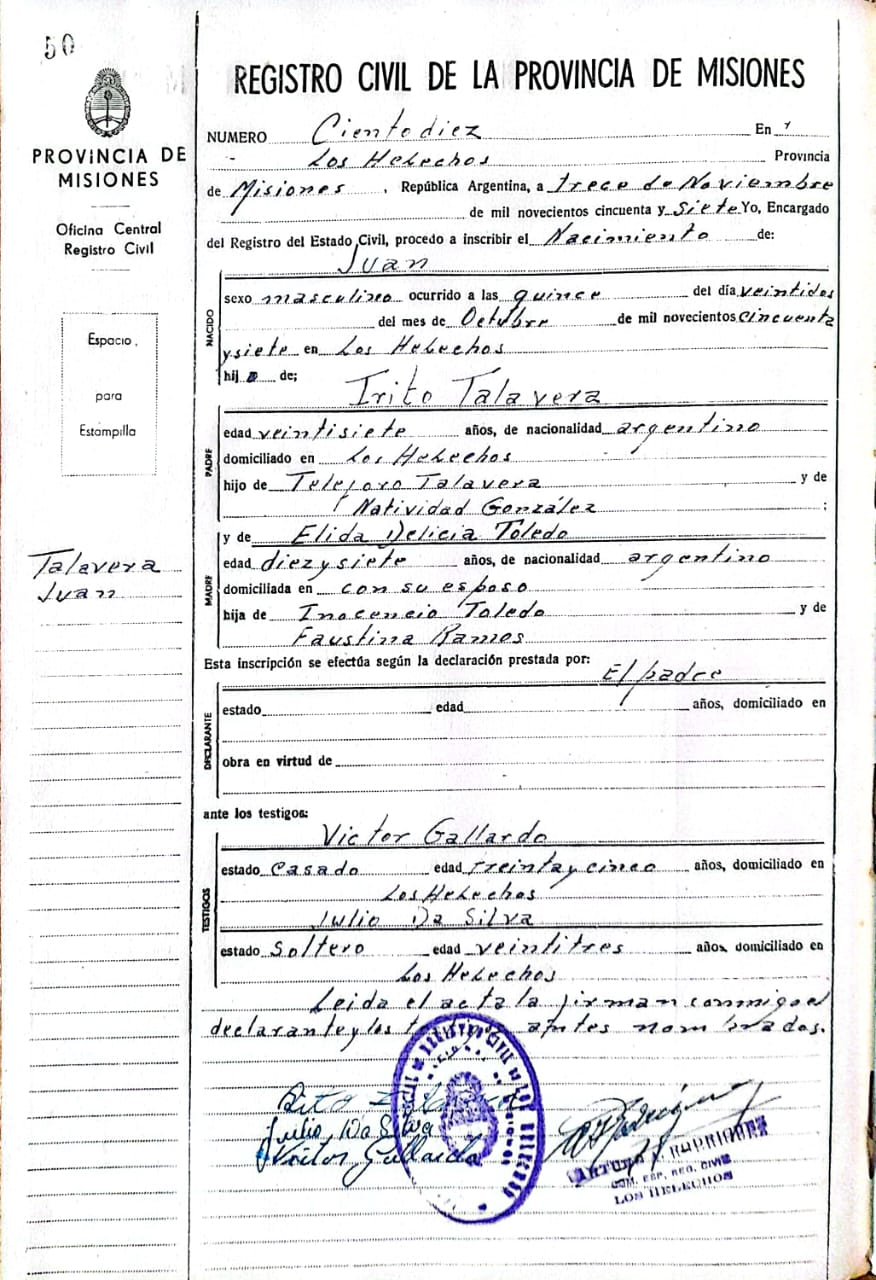 50
PROVINCIA DE
MISIONES
Oficina Central
Registro Civil
Espacio
para
Estampilla
Talavera
Juan
REGISTRO CIVIL DE LA PROVINCIA DE MISIONES
NUMERO Ciento diez En
Los Helechos Provincia
de Misiones, República Argentina, a trece de Noviembre
de mil novecientos cincuenta y Siete Yo, Encargado
del Registro del Estado Civil, procedo a inscribir el Nacimiento de:
Juan
NACIDO
sexo masculino ocurrido a las quince del día veintidos
del mes de Octubre de mil novecientos cincuenta
y siete en Los Helechos
hijo de;
Irito Talavera
PADRE
edad veintisiete años, de nacionalidad argentino
domiciliado en Los Helechos
hijo de Telesforo Talavera y de
Natividad González ;
y de Elida Delicia Toledo
MADRE
edad diezysiete años, de nacionalidad argentino
domiciliada en con su esposo
hija de Inocencio Toledo y de
Faustina Ramos
Esta inscripción se efectúa según la declaración prestada por:
El padre
DECLARANTE
estado edad años, domiciliado en
obra en virtud de
ante los testigos:
Victor Gallardo
TESTIGOS
estado Casado edad treinta y cinco años, domiciliado en
Los Helechos
Julio Da Silva
estado Soltero edad veintitres años, domiciliado en
Los Helechos
Leida el acta la firman conmigo el
declarante y los antes nombrados.
Julio Da Silva
Victor Gallardo
ARTURO RODRIGUEZ
COM. ESP. REG. CIVIL
LOS HELECHOS